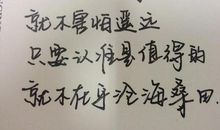 就不害怕遥远
只要认准是值得的
就不在乎沧海桑田.